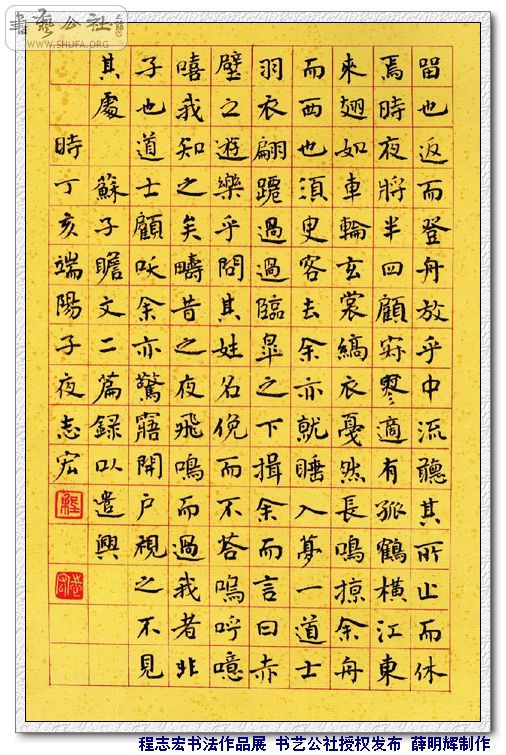 書藝公社
WWW.SHUFA.ORG
留也返而登舟放乎中流聽其所止而休
焉時夜將半四顧寂寥適有孤鶴橫江東
來翅如車輪玄裳縞衣戛然長鳴掠余舟
而西也須臾客去余亦就睡入夢一道士
羽衣翩躚過過臨皋之下揖余而言曰赤
壁之遊樂乎問其姓名俛而不答嗚呼噫
嘻我知之矣疇昔之夜飛鳴而過我者非
子也道士顧咲余亦驚寤開戶視之不見
其處 蘇子瞻文二篇錄以遣興
時丁亥端陽子夜志宏
程志宏书法作品展 书艺公社授权发布 薛明辉制作